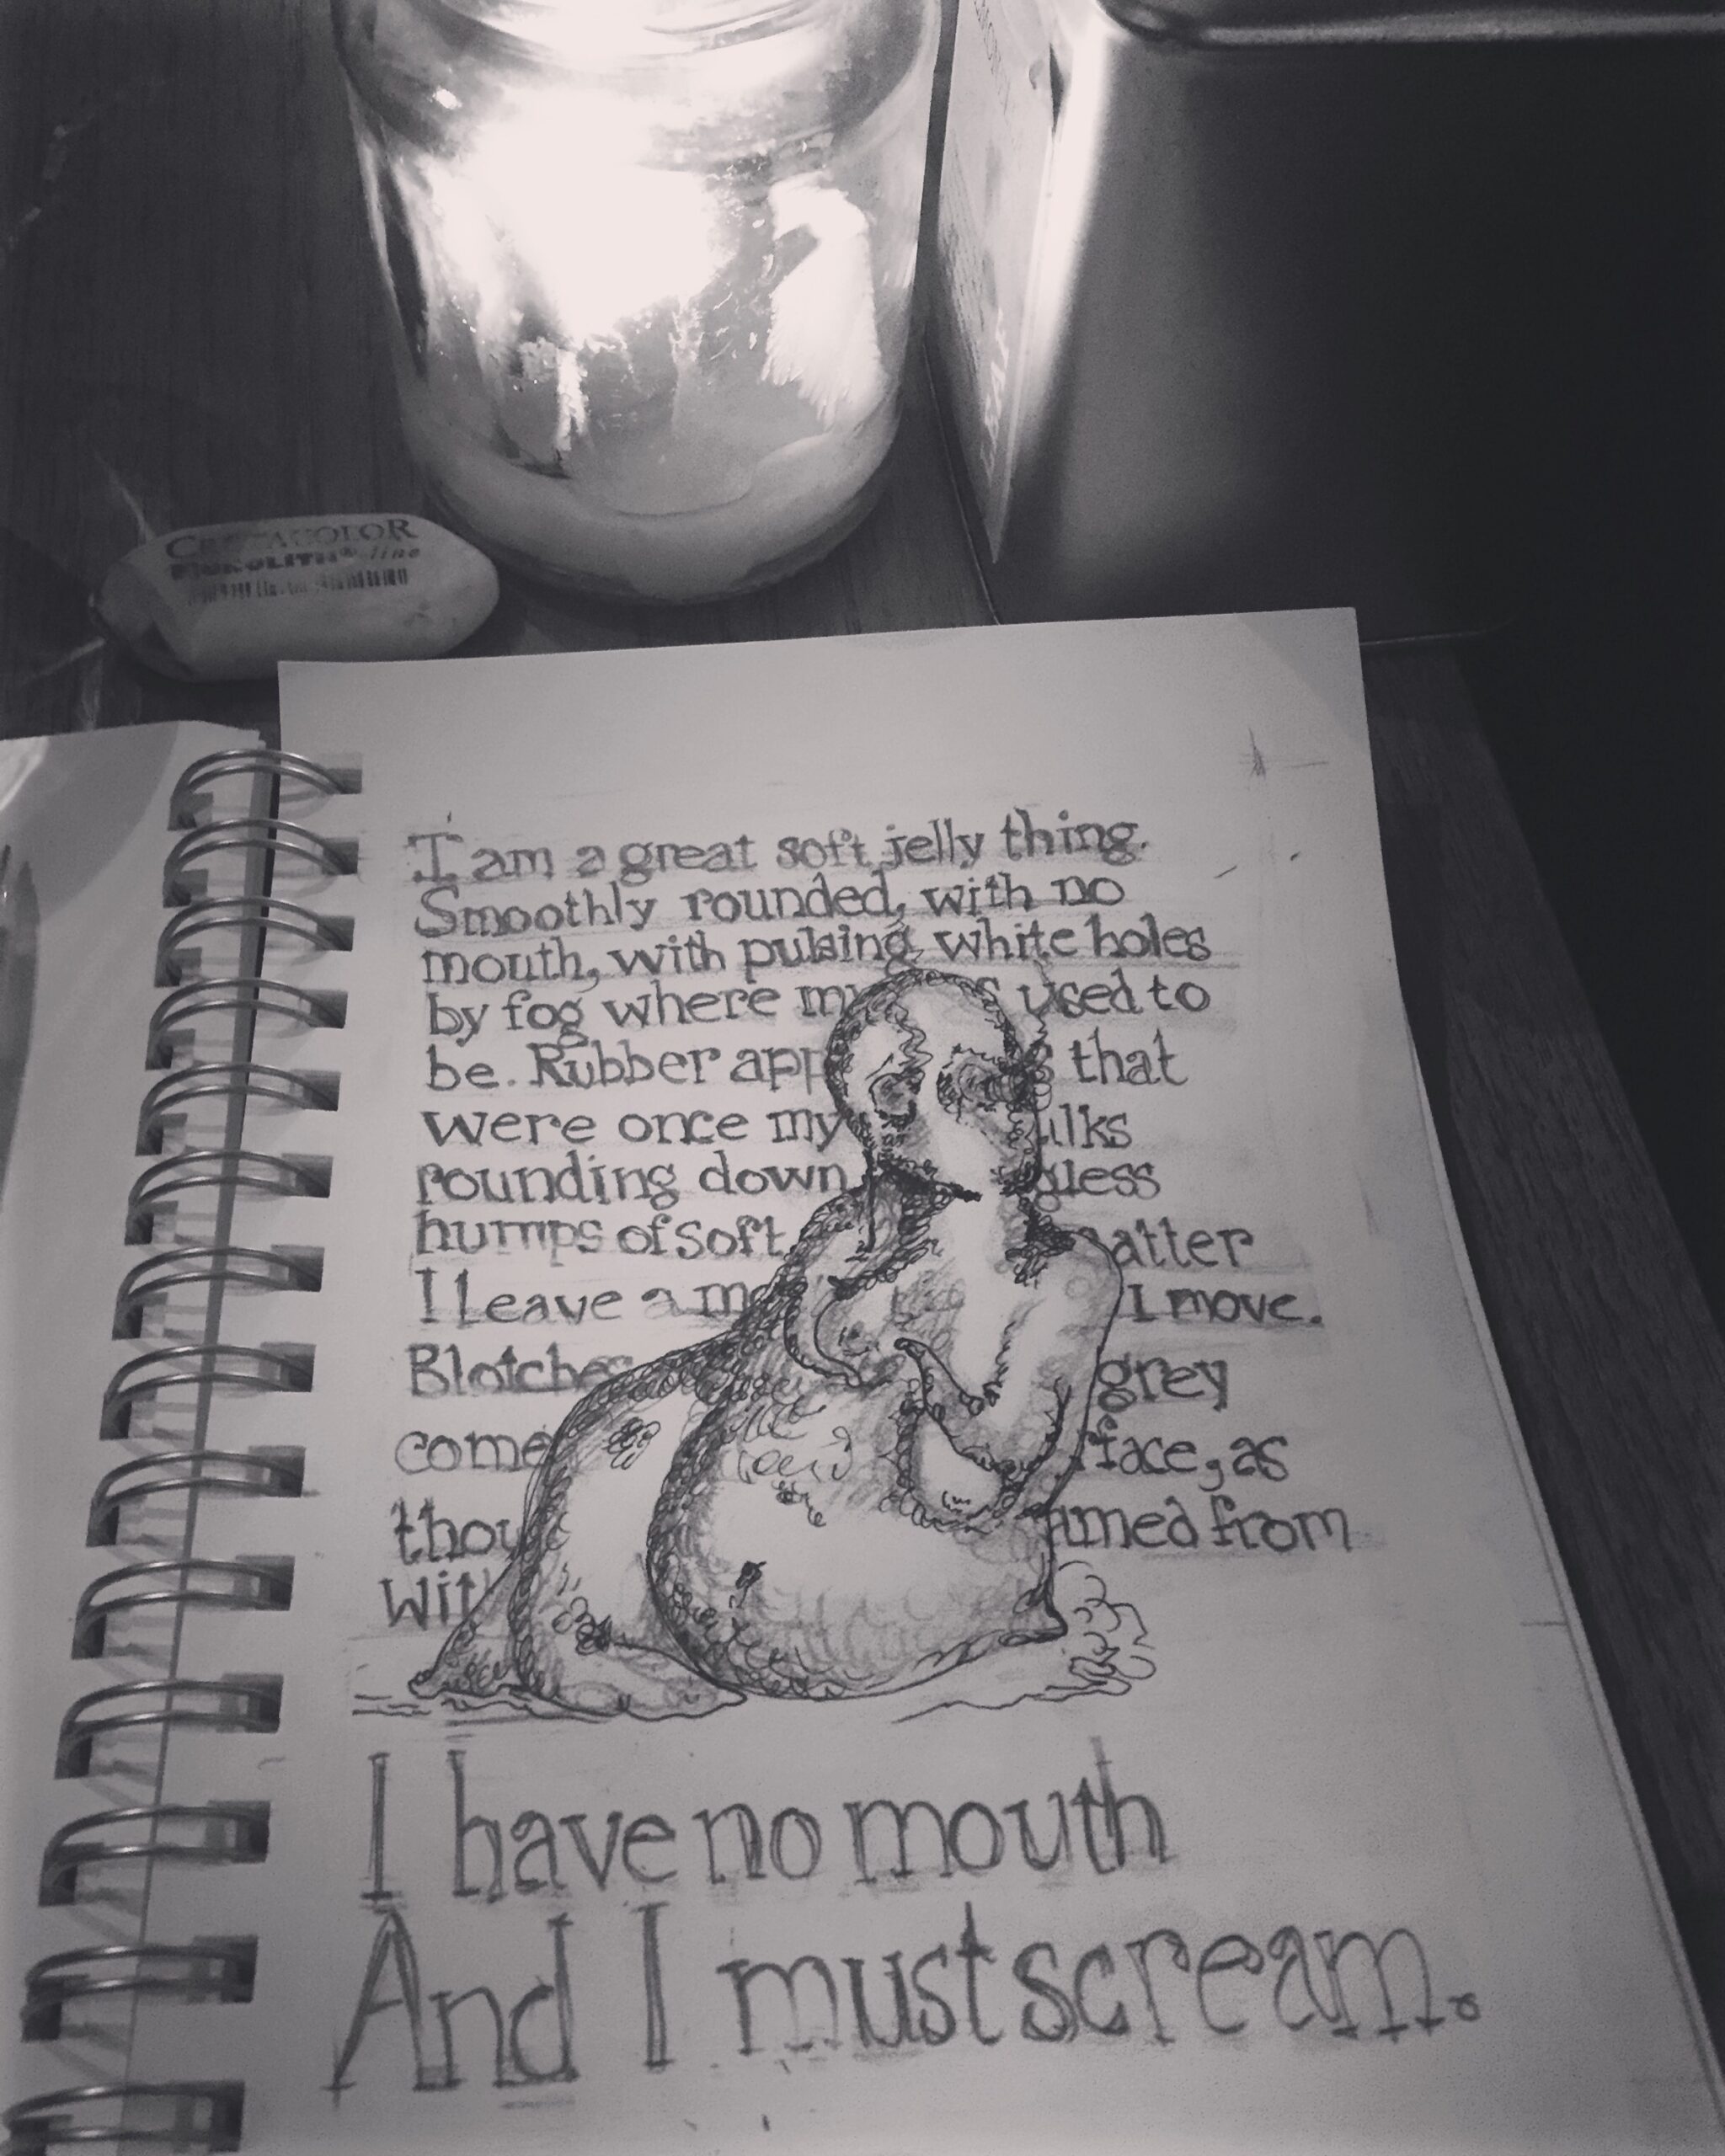 CRETACOLOR
MONOLITH® line
I am a great soft jelly thing.
Smoothly rounded, with no
mouth, with pulsing white holes
by fog where my used to
be. Rubber app that
were once my
rounding down
humps of soft
I Leave a I move.
Blotches grey
come as
from
I have no mouth
And I must scream.